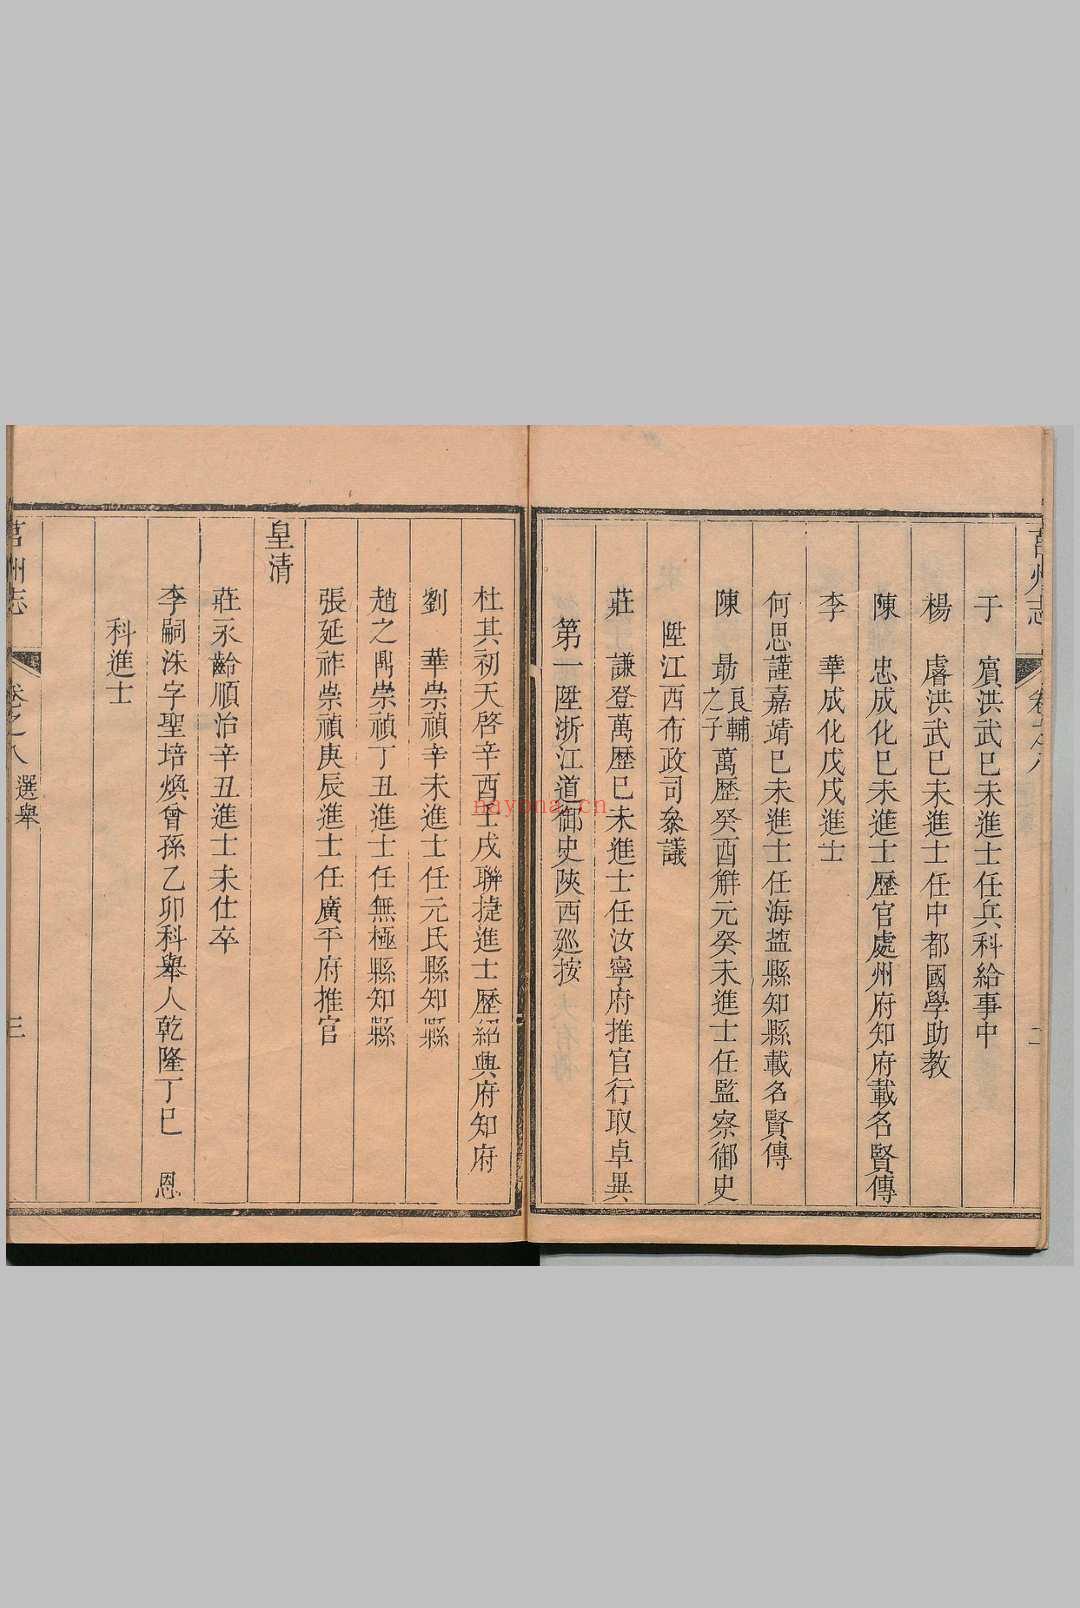 莒州志 卷之八 二
于 賔洪武巳未進士任兵科給事中
楊 睿洪武巳未進士任中都國學助教
陳 忠成化巳未進士歷官處州府知府載名賢傳
李 華成化戊戌進士
何思謹嘉靖巳未進士任海𥂁縣知縣載名賢傳
陳 勗良輔之子萬歷癸酉解元癸未進士任監察御史
陞江西布政司叅議
莊 謙登萬歷巳未進士任汝寧府推官行取卓異
第一陞浙江道御史陜西廵按
杜其初天啓辛酉壬戌聯捷進士歷紹興府知府
劉 華崇禎辛未進士任元氏縣知縣
趙之鼎崇禎丁丑進士任無極縣知縣
張延祚崇禎庚辰進士任廣平府推官
皇清
莊永齡順治辛丑進士未仕卒
李嗣洙字聖培煥曾孫乙卯科舉人乾隆丁巳 恩
科進士
莒州志 卷之八 選舉 三
nayona.cn